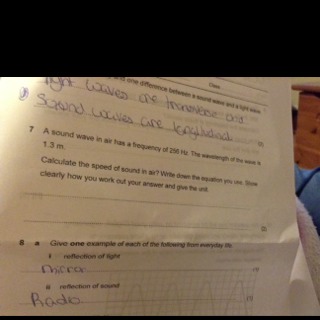 and one difference between a sound wave and a light wave
light waves are transverse and
Sound waves are longitudinal
7 A sound wave in air has a frequency of 256 Hz. The wavelength of the wave is
1.3 m.
Calculate the speed of sound in air? Write down the equation you use. Show
clearly how you work out your answer and give the unit.
(3)
8 a Give one example of each of the following from everyday life.
i reflection of light
mirror
(1)
ii reflection of sound
Radio
(1)